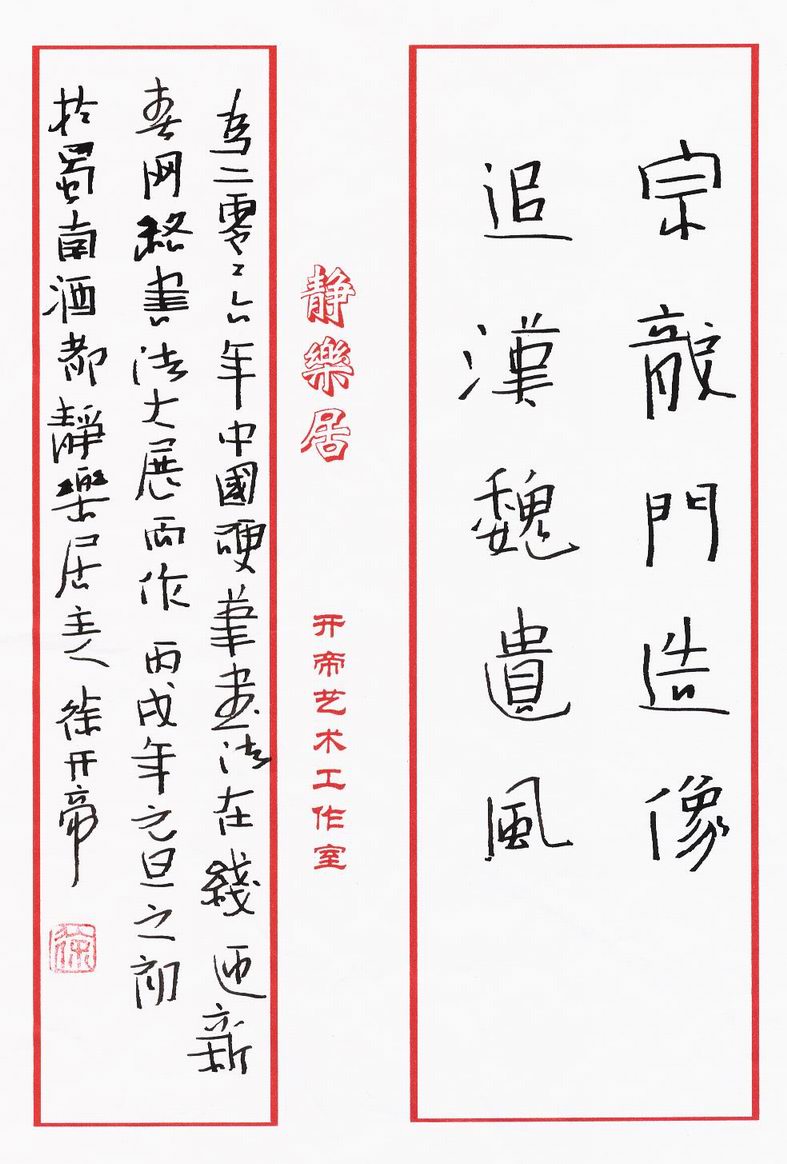 宗龍門造像
追漢魏遺風
静樂居
开帝艺术工作室
為二零零六年中國硬筆書法在綫迎新
春网絡書法大展而作 丙戌年元旦之前
於蜀南酒都靜樂居主人 徐开帝
徐